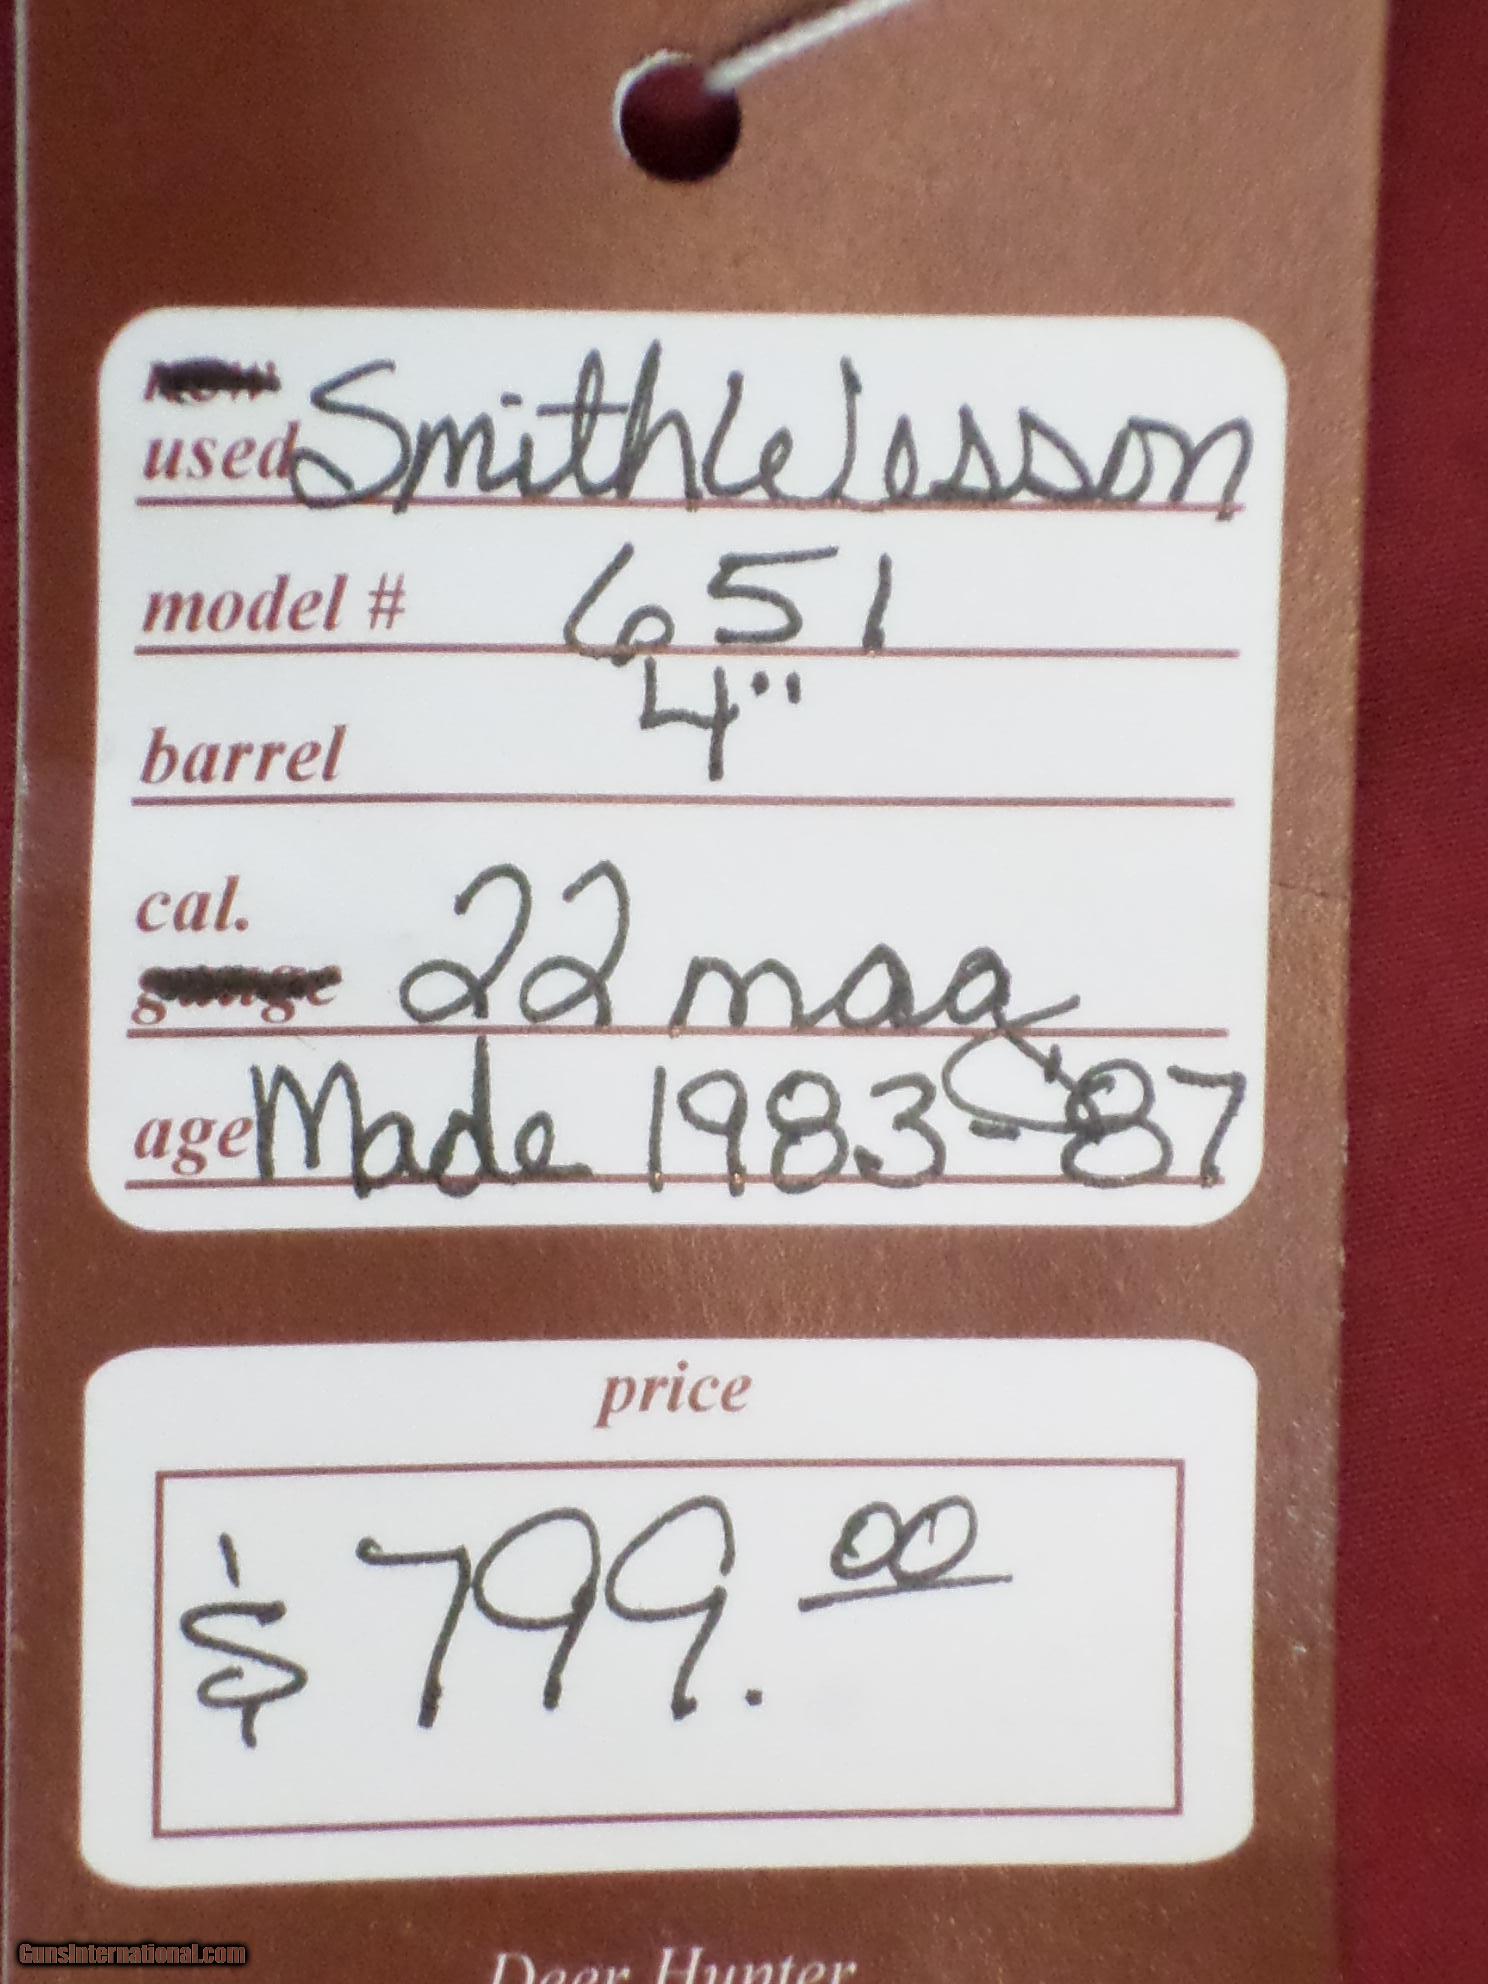 new
used Smith Wesson
model # 651
barrel 4"
cal.
gauge 22 mag
age Made 1983-87
price
$799.00
Deer Hunter
GunsInternational.com